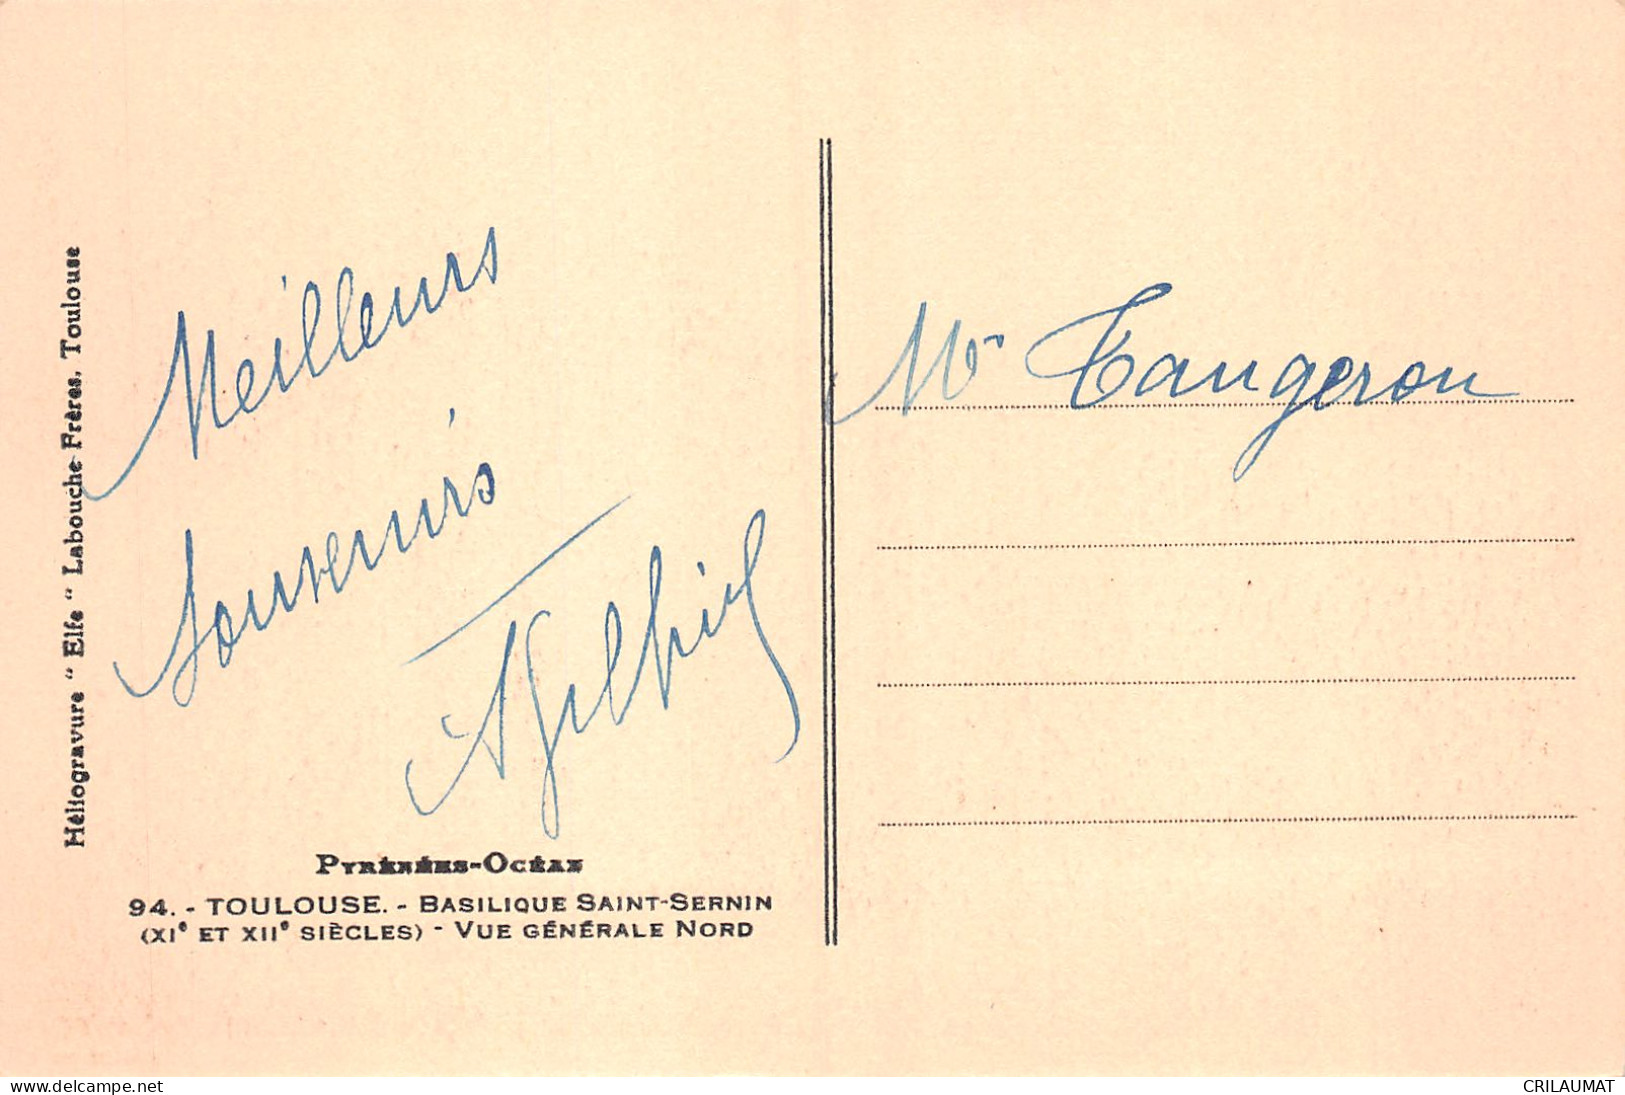 Héliogravure “ Elfe “ Labouche Frères, Toulouse
Meilleurs
Souvenirs
PYRÉNÉES-OCÉAN
94. - TOULOUSE. - BASILIQUE SAINT-SERNIN
(XIᵉ ET XIIᵉ SIÈCLES) - VUE GÉNÉRALE NORD
Mr Taugeron
www.delcampe.net
CRILAUMAT